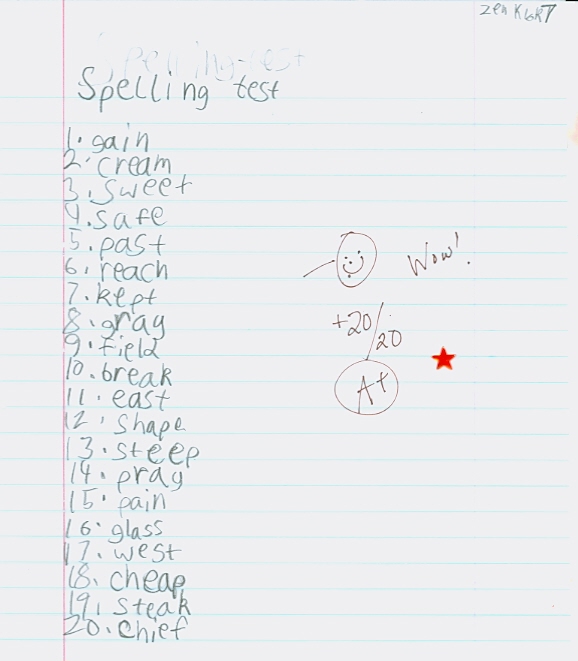 Spelling test
Spelling test
1. gain
2. cream
3. sweet
4. safe
5. past
6. reach
7. kept
8. gray
9. field
10. break
11. east
12. shape
13. steep
14. pray
15. pain
16. glass
17. west
18. cheap
19. steak
20. chief
Wow!
+20/20
A+